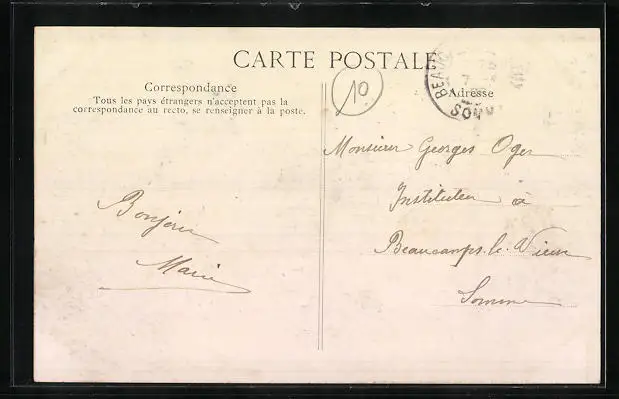 CARTE POSTALE
Correspondance
Tous les pays étrangers n'acceptent pas la
correspondance au recto, se renseigner à la poste.
10
Adresse
Monsieur Georges Oger
Instituteur à
Beaucamps-le-Vieux
Somme
Bonjour
Marie